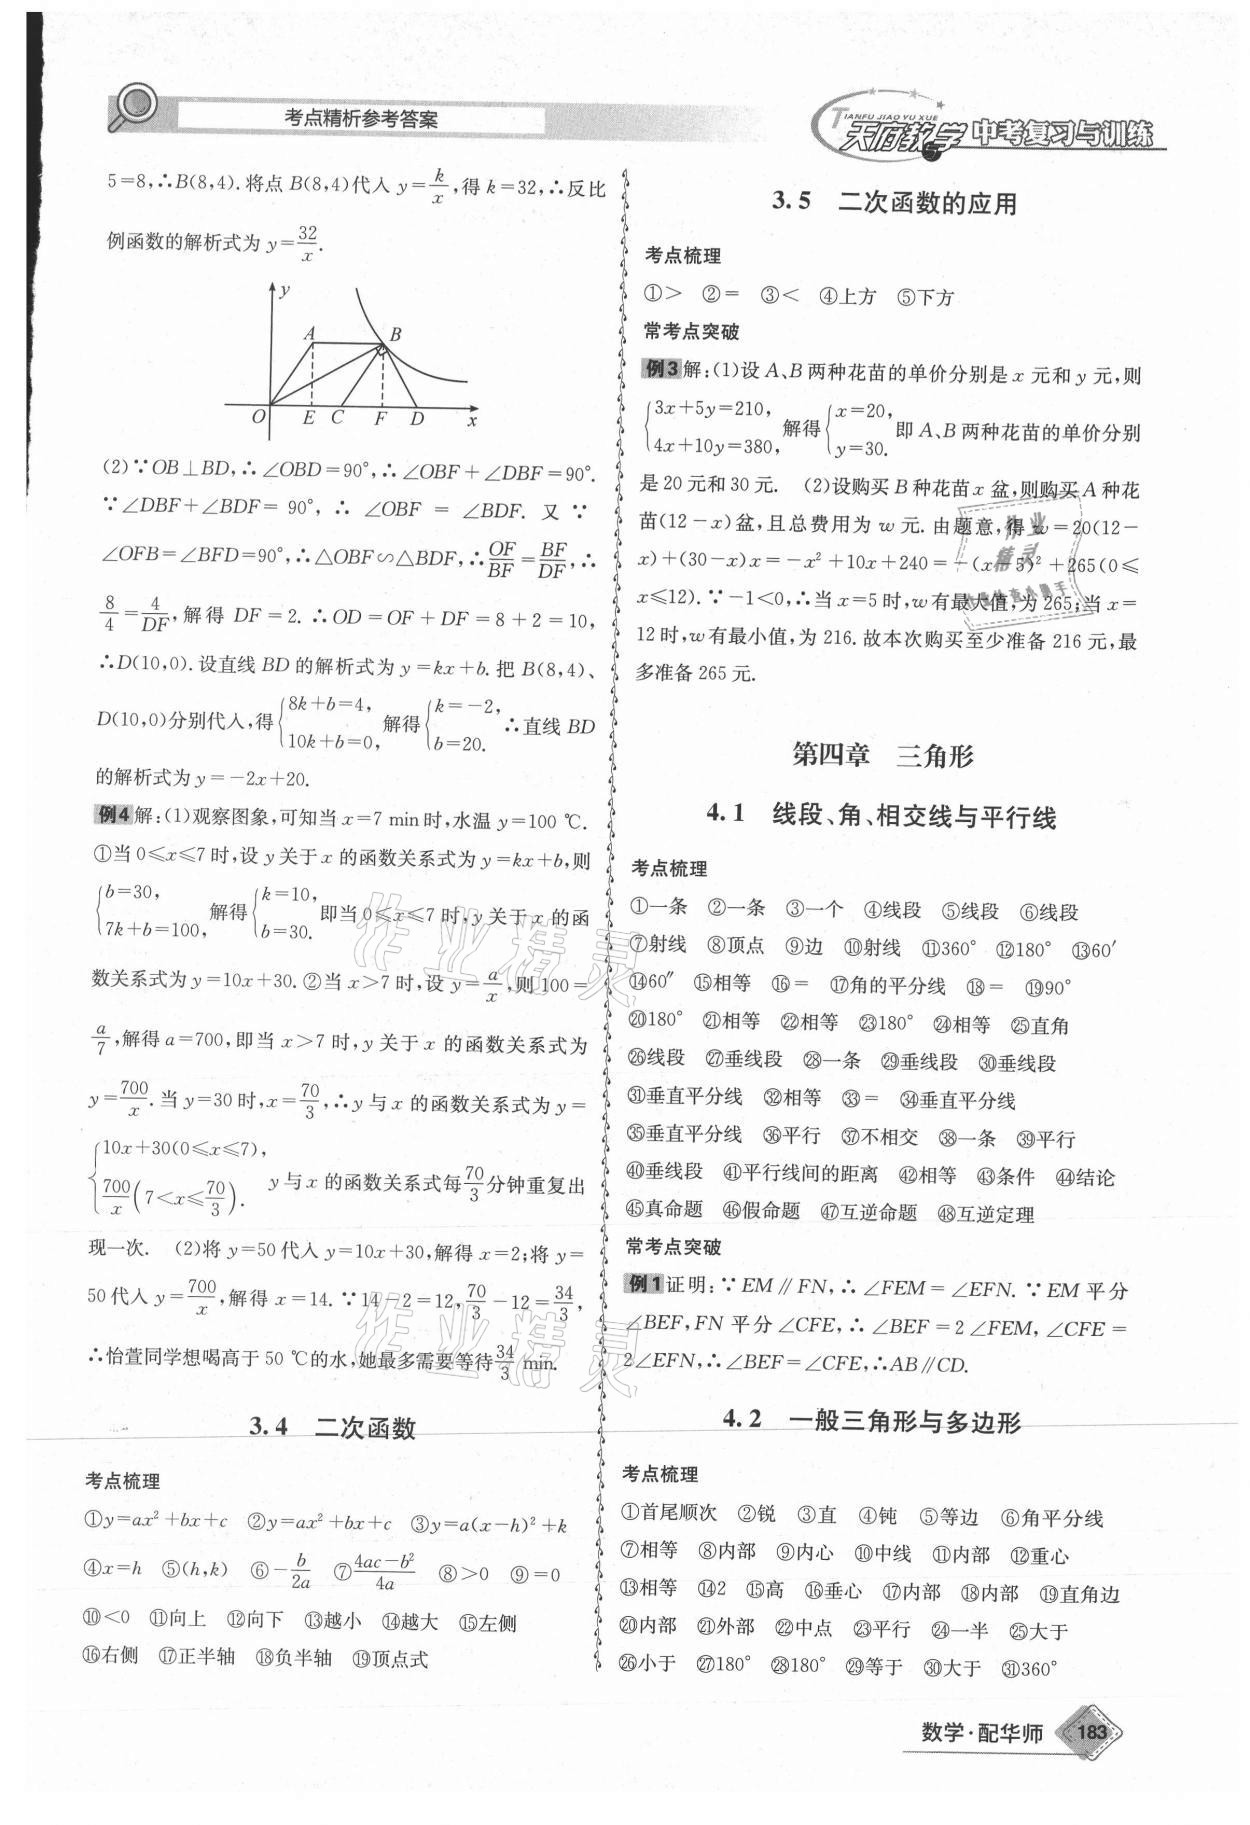 考点精析参考答案
TIANFU JIAO YU XUE
天府教与学 中考复习与训练
5=8,∴B(8,4).将点B(8,4)代入y=k/x,得k=32,∴反比
例函数的解析式为y=32/x.
y
A B
O E C F D x
(2)∵OB⊥BD,∴∠OBD=90°,∴∠OBF+∠DBF=90°.
∵∠DBF+∠BDF=90°,∴∠OBF=∠BDF.又∵
∠OFB=∠BFD=90°,∴△OBF∽△BDF,∴OF/BF=BF/DF,∴
8/4=4/DF,解得DF=2.∴OD=OF+DF=8+2=10,
∴D(10,0).设直线BD的解析式为y=kx+b.把B(8,4)、
D(10,0)分别代入,得{8k+b=4, 10k+b=0, 解得{k=-2, b=20. ∴直线BD
的解析式为y=-2x+20.
例4 解:(1)观察图象,可知当x=7 min时,水温y=100 ℃.
①当0≤x≤7时,设y关于x的函数关系式为y=kx+b,则
{b=30, 7k+b=100, 解得{k=10, b=30. 即当0≤x≤7时,y关于x的函
数关系式为y=10x+30.②当x>7时,设y=a/x,则100=
a/7,解得a=700,即当x>7时,y关于x的函数关系式为
y=700/x.当y=30时,x=70/3,∴y与x的函数关系式为y=
{10x+30(0≤x≤7), 700/x(7<x≤70/3). y与x的函数关系式每70/3分钟重复出
现一次. (2)将y=50代入y=10x+30,解得x=2;将y=
50代入y=700/x,解得x=14.∵14-2=12,70/3-12=34/3,
∴怡萱同学想喝高于50 ℃的水,她最多需要等待34/3 min.
3.4 二次函数
考点梳理
①y=ax²+bx+c ②y=ax²+bx+c ③y=a(x-h)²+k
④x=h ⑤(h,k) ⑥-b/2a ⑦(4ac-b²)/4a ⑧>0 ⑨=0
⑩<0 ⑪向上 ⑫向下 ⑬越小 ⑭越大 ⑮左侧
⑯右侧 ⑰正半轴 ⑱负半轴 ⑲顶点式
3.5 二次函数的应用
考点梳理
①> ②= ③< ④上方 ⑤下方
常考点突破
例3 解:(1)设A、B两种花苗的单价分别是x元和y元,则
{3x+5y=210, 4x+10y=380, 解得{x=20, y=30. 即A、B两种花苗的单价分别
是20元和30元. (2)设购买B种花苗x盆,则购买A种花
苗(12-x)盆,且总费用为w元.由题意,得w=20(12-
x)+(30-x)x=-x²+10x+240=-(x-5)²+265(0≤
x≤12).∵-1<0,∴当x=5时,w有最大值,为265;当x=
12时,w有最小值,为216.故本次购买至少准备216元,最
多准备265元.
第四章 三角形
4.1 线段、角、相交线与平行线
考点梳理
①一条 ②一条 ③一个 ④线段 ⑤线段 ⑥线段
⑦射线 ⑧顶点 ⑨边 ⑩射线 ⑪360° ⑫180° ⑬60′
⑭60″ ⑮相等 ⑯= ⑰角的平分线 ⑱= ⑲90°
⑳180° ㉑相等 ㉒相等 ㉓180° ㉔相等 ㉕直角
㉖线段 ㉗垂线段 ㉘一条 ㉙垂线段 ㉚垂线段
㉛垂直平分线 ㉜相等 ㉝= ㉞垂直平分线
㉟垂直平分线 ㊱平行 ㊲不相交 ㊳一条 ㊴平行
㊵垂线段 ㊶平行线间的距离 ㊷相等 ㊸条件 ㊹结论
㊺真命题 ㊻假命题 ㊼互逆命题 ㊽互逆定理
常考点突破
例1 证明:∵EM∥FN,∴∠FEM=∠EFN.∵EM平分
∠BEF,FN平分∠CFE,∴∠BEF=2∠FEM,∠CFE=
2∠EFN,∴∠BEF=∠CFE,∴AB∥CD.
4.2 一般三角形与多边形
考点梳理
①首尾顺次 ②锐 ③直 ④钝 ⑤等边 ⑥角平分线
⑦相等 ⑧内部 ⑨内心 ⑩中线 ⑪内部 ⑫重心
⑬相等 ⑭2 ⑮高 ⑯垂心 ⑰内部 ⑱内部 ⑲直角边
⑳内部 ㉑外部 ㉒中点 ㉓平行 ㉔一半 ㉕大于
㉖小于 ㉗180° ㉘180° ㉙等于 ㉚大于 ㉛360°
数学·配华师 183
作业精灵
作业精灵
作业
精灵